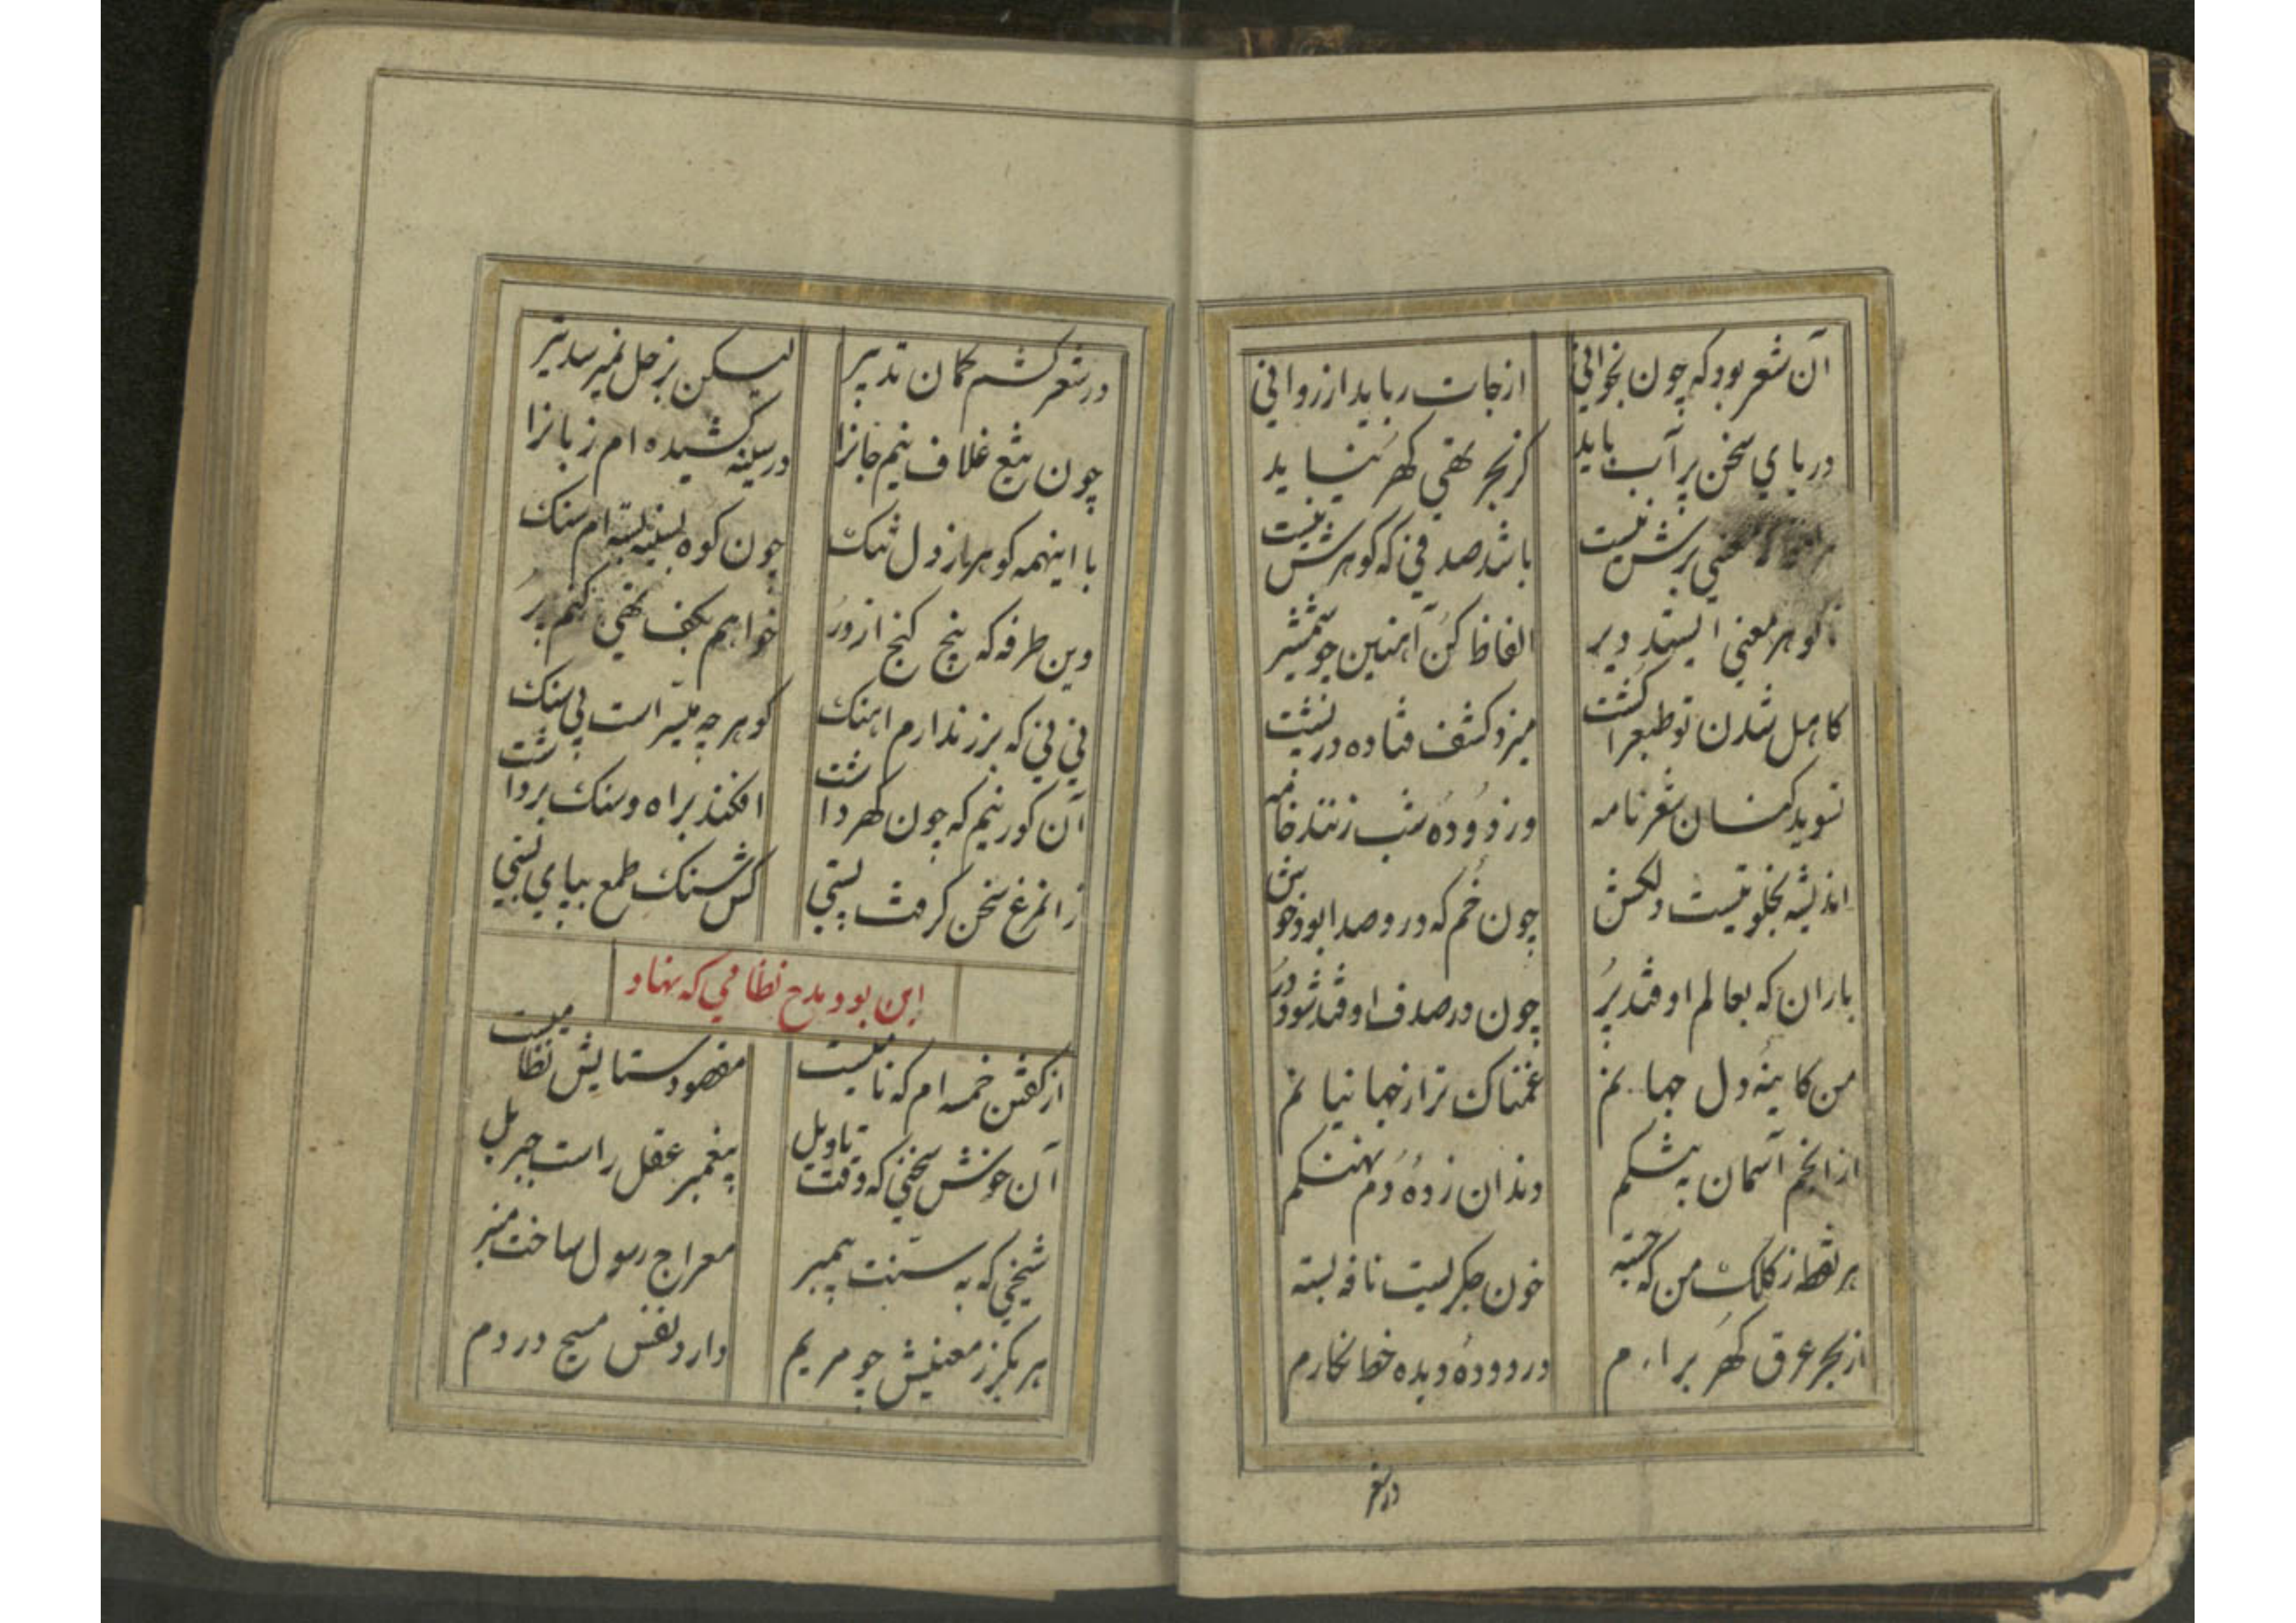 آن شعر بود که چون بخوانی از جات رباید از روانی
دریای سخن پر آب باید کز بحر تهی کهر نیاید
معنی برش نیست باشد صدفی که کوهرش نیست
کوهر معنی ایستد دیر الفاظ کن آهنین چو شمشیر
کاهل شدن تو طبع را کشت میزد کشف فتاده در پشت
نوید کسان شعر نامه ور دوده شب زنند خامه
اندیشه بخلوتیست دلکش چون خم که درو صدا بود خوش
باران که بعالم اوفتد پر چون در صدف اوفتد شود در
من کاینه دل جهانم غمناک تر از جهانیانم
از انجم آسمان به شکم دندان زده دم نهنکم
هر نقطه ز کلک من که جسته خون جکریست نافه بسته
از بحر عرق کهر برارم در دوده دیده خط نکارم
در شعر
در شعر کشم کمان تدبیر لیکن بزحل نمیرسد تیر
چون تیغ غلاف نیم جانرا در سینه کشیده ام زبانرا
با اینهمه کوهر از دل تنک چون کوه بسینه بسته ام سنک
وین طرفه که پنج کنج از در خواهم بکف تهی کنم پر
نی نی که بزر ندارم اهنک کوهر چه میسر است بی سنک
آن کور نیم که چون کهر داشت افکند براه و سنک برداشت
زانمرغ سخن کرفت پستی کس سنک طمع بپای بستی
این بود مدح نظامی که نهاد
از کفتن خمسه ام که نامیست مقصود ستایش نظامیست
آن خوش سخنی که وقت تاویل پیغمبر عقل راست جبریل
شیخی که به سنت پیمبر معراج رسول ساخت منبر
هر بکر ز معنیش چو مریم دارد نفس مسیح در دم